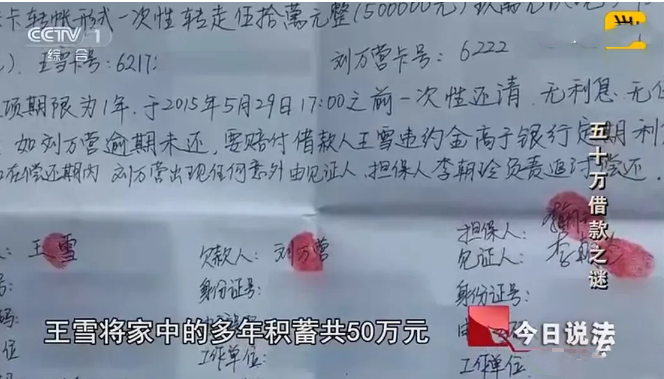 卡转帐形式一次性转走伍拾萬元整(500000元)
CCTV 1
综合
王雪卡号:6217:
刘万营卡号: 6222
项期限为1年,于2015年5月29日17:00之前一次性还清,无利息、无
如刘万营逾期未还,要赔付借款人王雪违约金高于银行定期利
在偿还期内 刘万营出现任何意外由见证人、担保人李朝玲负责追讨偿还.
王雪
欠款人: 刘万营
担保人:
见证人: 李朝
身份证号:
身份证号:
工作单位:
工作单位
五十万借款之谜
王雪将家中的多年积蓄共50万元
今日说法